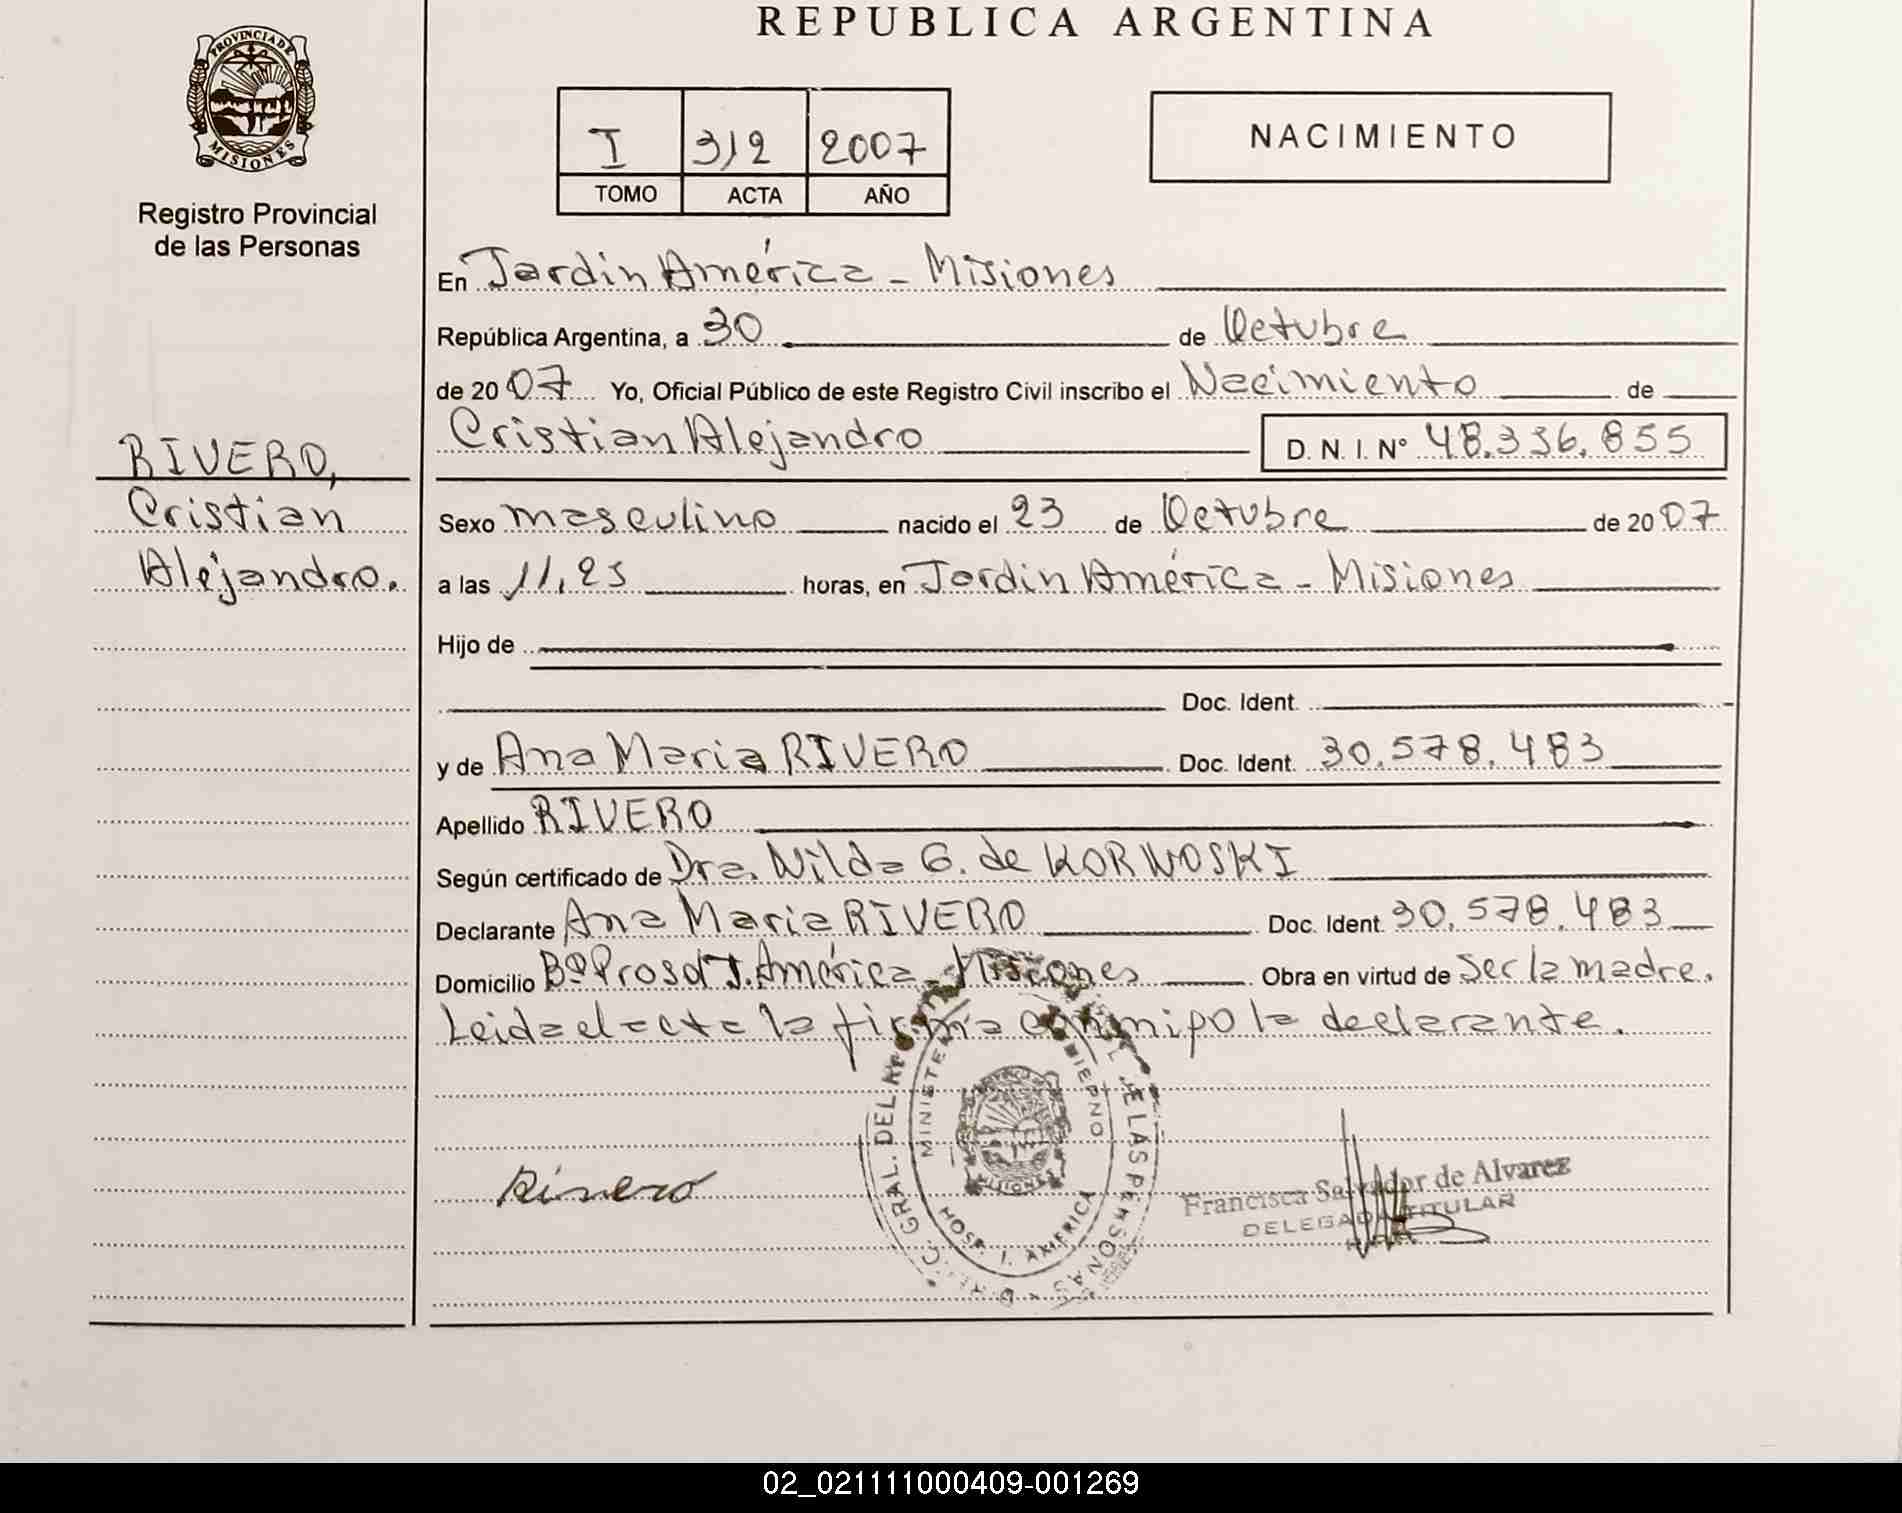 REPUBLICA ARGENTINA
PROVINCIA DE
MISIONES
Registro Provincial
de las Personas
I 312 2007
TOMO ACTA AÑO
NACIMIENTO
RIVERO,
Cristian
Alejandro.
En Jardin América - Misiones
República Argentina, a 30 de Octubre
de 2007 Yo, Oficial Público de este Registro Civil inscribo el Nacimiento de
Cristian Alejandro D. N. I. Nº 48.336.855
Sexo masculino nacido el 23 de Octubre de 2007
a las 11,25 horas, en Jardin América - Misiones
Hijo de
Doc. Ident.
y de Ana Maria RIVERO Doc. Ident. 30.578.483
Apellido RIVERO
Según certificado de Dra. Nilda G. de KORNOSKI
Declarante Ana Maria RIVERO Doc. Ident. 30.578.483
Domicilio Bº Prosol J. América - Misiones Obra en virtud de ser la madre.
Leida el acta la firma conmipo la declarante.
Rivero
GRAL. DEL
DE LAS PERSONAS
HOSP. J. AMERICA
MISIONES
Francisca Salvador de Alvarez
DELEGADA TITULAR
02_021111000409-001269